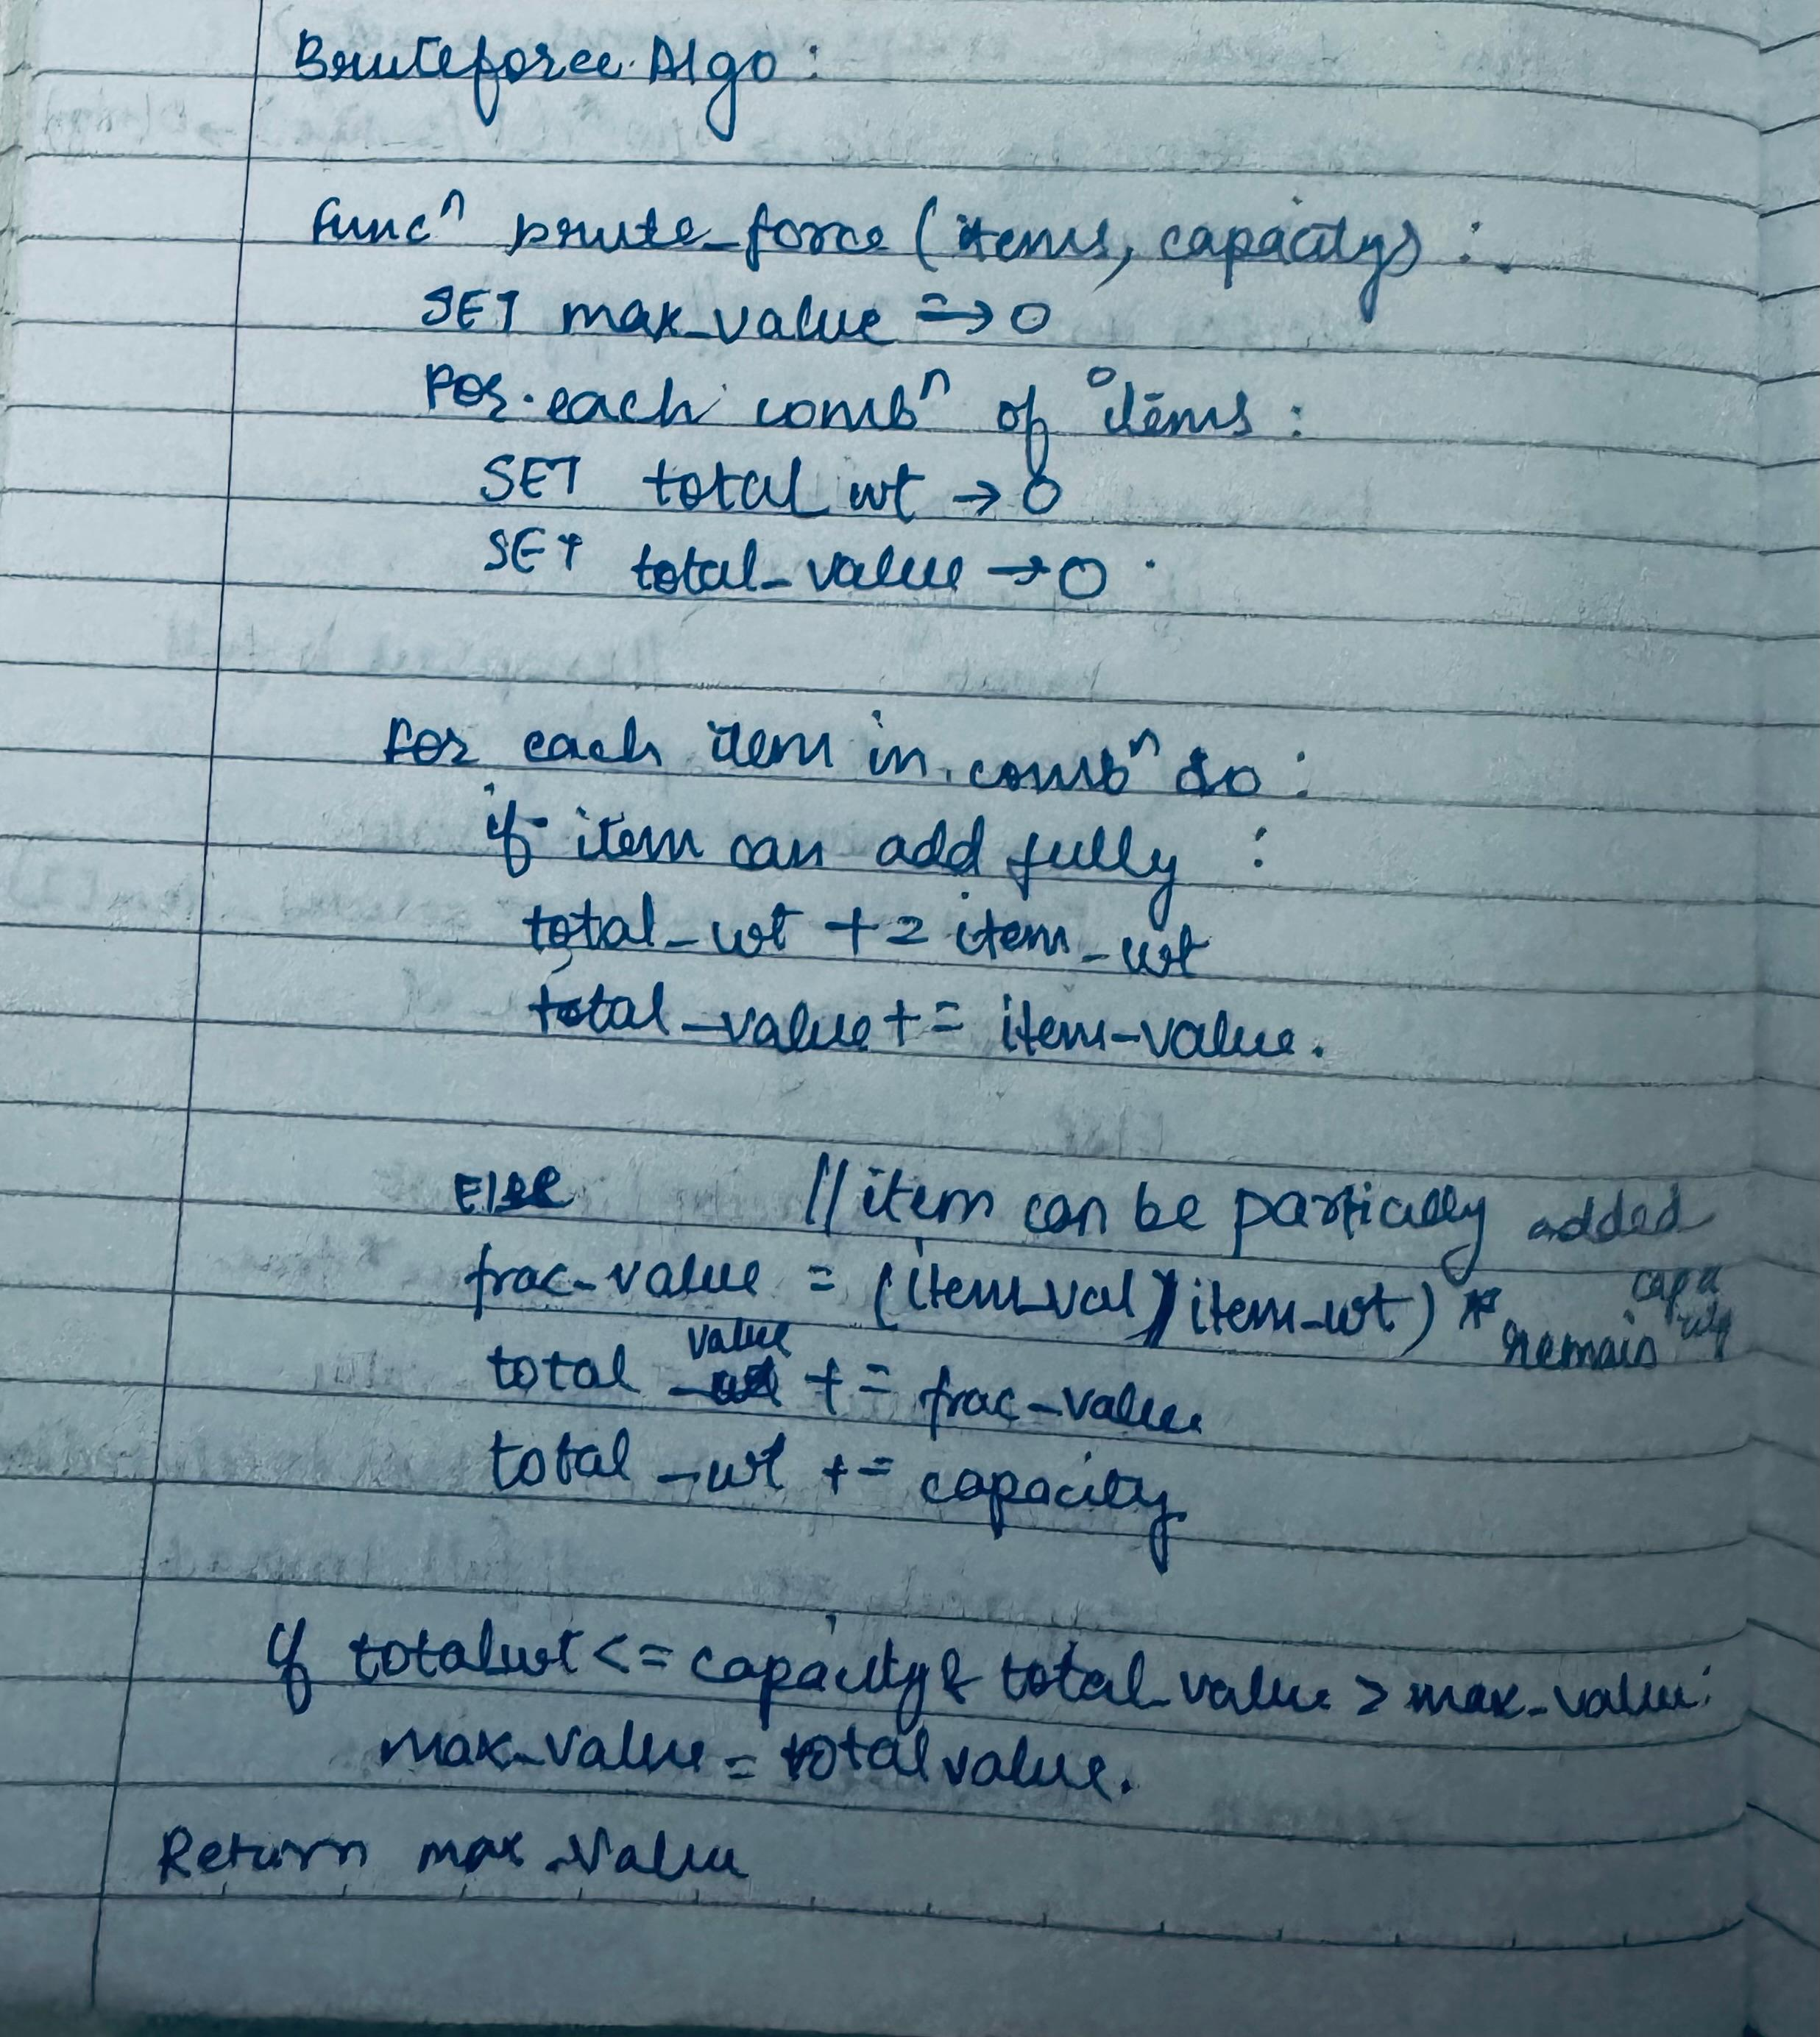 Bruteforce Algo :
Funcⁿ brute_force (items, capacity) :
SET max_value => 0
For each combⁿ of items :
SET total_wt → 0
SET total_value → 0
For each item in combⁿ do :
if item can add fully :
total_wt += item_wt
total_value += item_value.
Else // item can be partically added
frac_value = (item_val / item_wt) * remain capacity
total_value += frac_value
total_wt += capacity
if totalwt <= capacity & total_value > max_value:
max_value = total value.
Return max_value